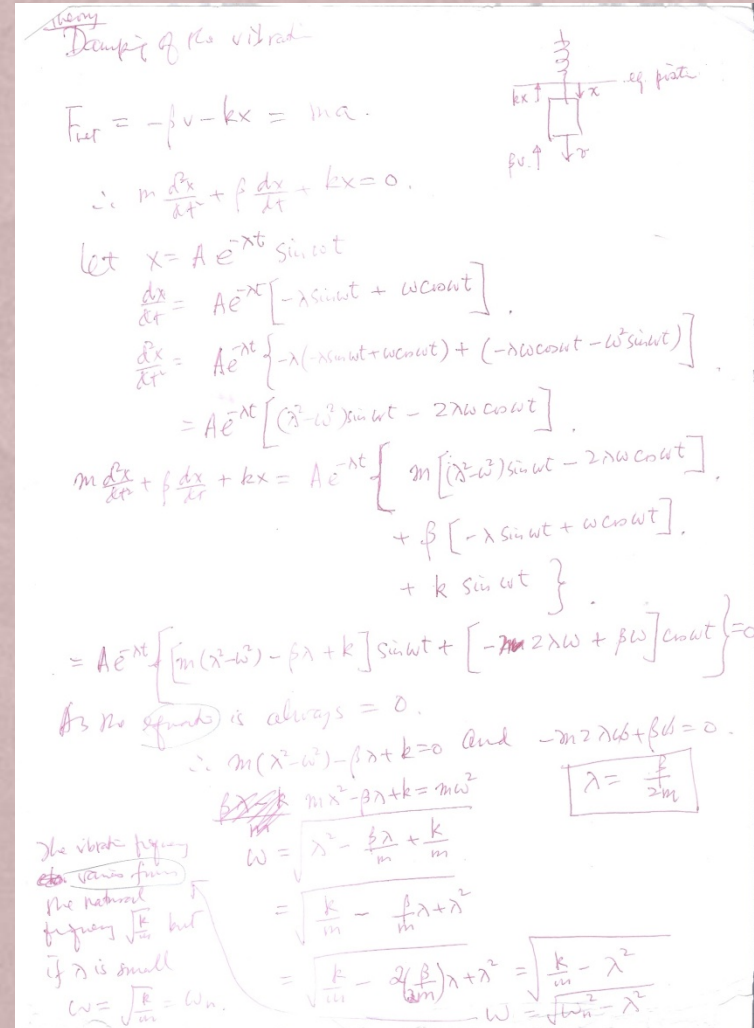 Theory
Damping of the vibrati
F_net = -βv - kx = ma.
kx x eq. positn
βv. v
∴ m d²x/dt² + β dx/dt + kx = 0.
let x = A e^{-λt} sin ωt
dx/dt = Ae^{-λt} [-λ sin ωt + ω cos ωt].
d²x/dt² = Ae^{-λt} {-λ(-λ sin ωt + ω cos ωt) + (-λω cos ωt - ω² sin ωt)].
= Ae^{-λt} [(λ²-ω²) sin ωt - 2λω cos ωt].
m d²x/dt² + β dx/dt + kx = Ae^{-λt} { m [(λ²-ω²) sin ωt - 2λω cos ωt].
+ β [-λ sin ωt + ω cos ωt].
+ k sin ωt }.
= Ae^{-λt} {[m(λ²-ω²) - βλ + k] sin ωt + [-m 2λω + βω] cos ωt} = 0
As the equatio is always = 0.
∴ m(λ²-ω²) - βλ + k = 0 and -m2λω + βω = 0.
mλ² - βλ + k = mω²
λ = β/2m
ω = √(λ² - βλ/m + k/m)
= √(k/m - β/m λ + λ²)
= √(k/m - 2(β/2m)λ + λ²) = √(k/m - λ²)
ω = √(ωn² - λ²)
The vibratn frequeny
varies from
the natural
frequeny √(k/m) but
if λ is small
ω = √(k/m) = ωn.